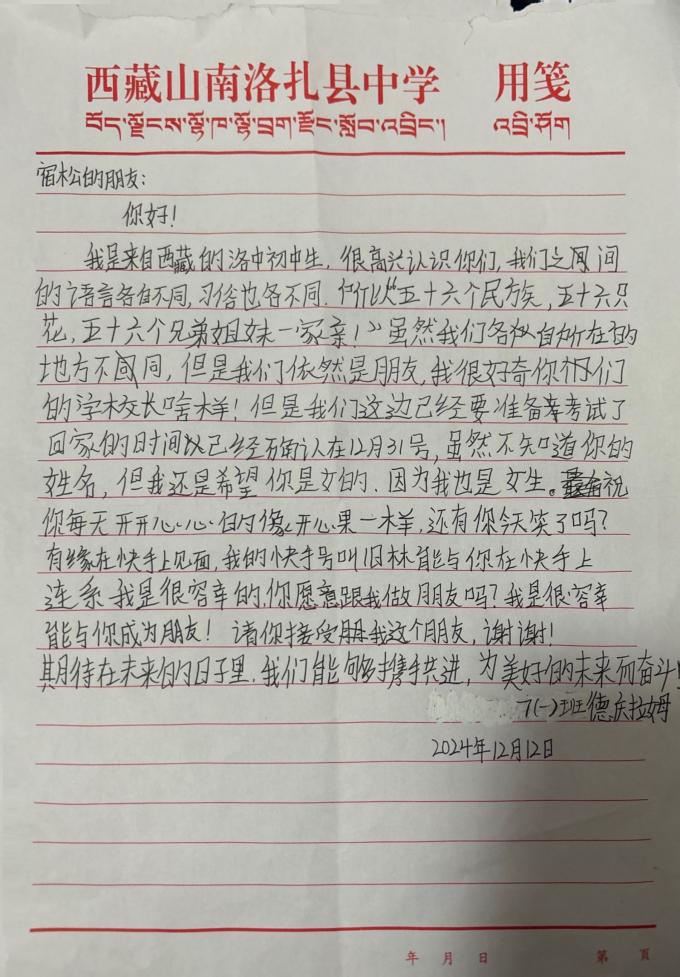 西藏山南洛扎县中学 用笺
བོད་ལྗོངས་ལྷོ་ཁ་ལྷོ་བྲག་རྫོང་སློབ་འབྲིང་། འབྲི་ཤོག
宿松的朋友：
你好！
我是来自西藏的洛中初中生，很高兴认识你们，我们之间
的语言各自不同，习俗也各不同．所以“五十六个民族，五十六只
花，五十六个兄弟姐妹一家亲！”虽然我们各自所在的
地方不同，但是我们依然是朋友，我很好奇你们
的学校长啥样！但是我们这边已经要准备考试了
回家的时间已经确认在12月31号，虽然不知道你的
姓名，但我还是希望你是女的．因为我也是女生。祝
你每天开开心心的像开心果一样，还有你今天笑了吗？
有缘在快手上见面，我的快手号叫旦林能与你在快手上
连系 我是很容幸的，你愿意跟我做朋友吗？我是很容幸
能与你成为朋友！请你接受我这个朋友，谢谢！
期待在未来的日子里，我们能够携手共进，为美好的未来而奋斗！
7(一)班德庆拉姆
2024年12月12日
年 月 日 第 页